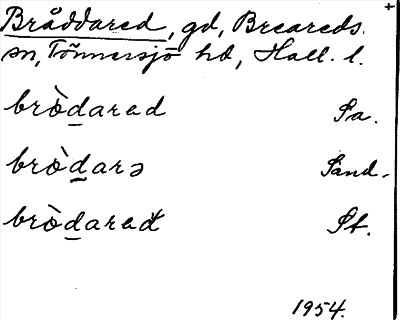 Bråddared, gd, Breareds
sn, Tönnersjö hd, Hall. l.
brò̲darad Sa.
brò̲darə Sand.
brò̲darad St.
1954.